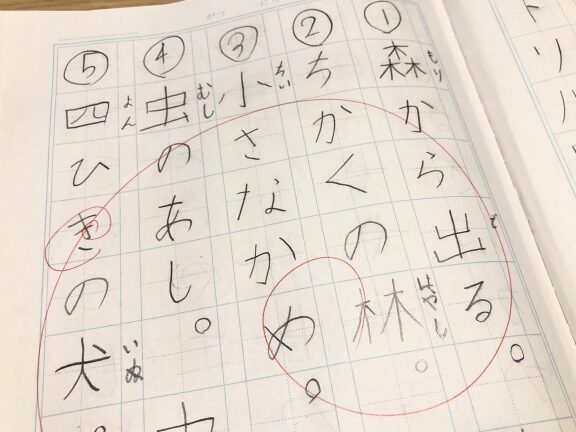 トリ
①森から出る。
もり で
②ちかくの林。
はやし
③小さなかめ。
ちい
④虫のあし。
むし
⑤四ひきの犬。
よん いぬ